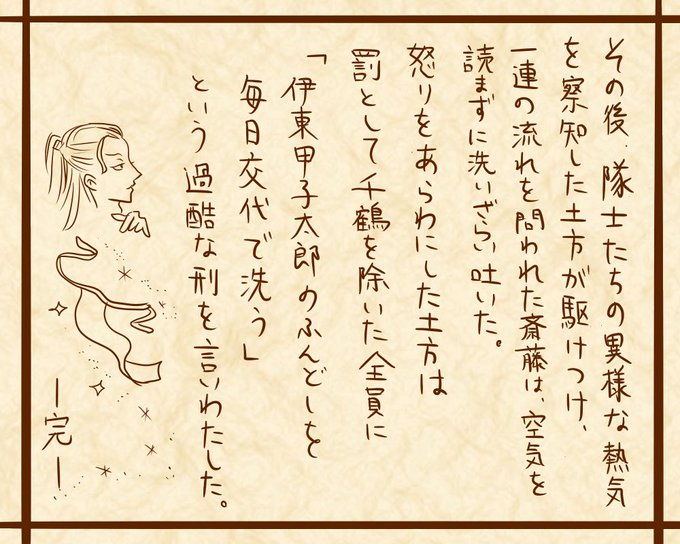 その後、隊士たちの異様な熱気
を察知した土方が駆けつけ、
一連の流れを問われた斎藤は、空気を
読まずに洗いざらい吐いた。
怒りをあらわにした土方は
罰として千鶴を除いた全員に
「伊東甲子太郎のふんどしを
毎日交代で洗う」
という過酷な刑を言いわたした。
ー完ー